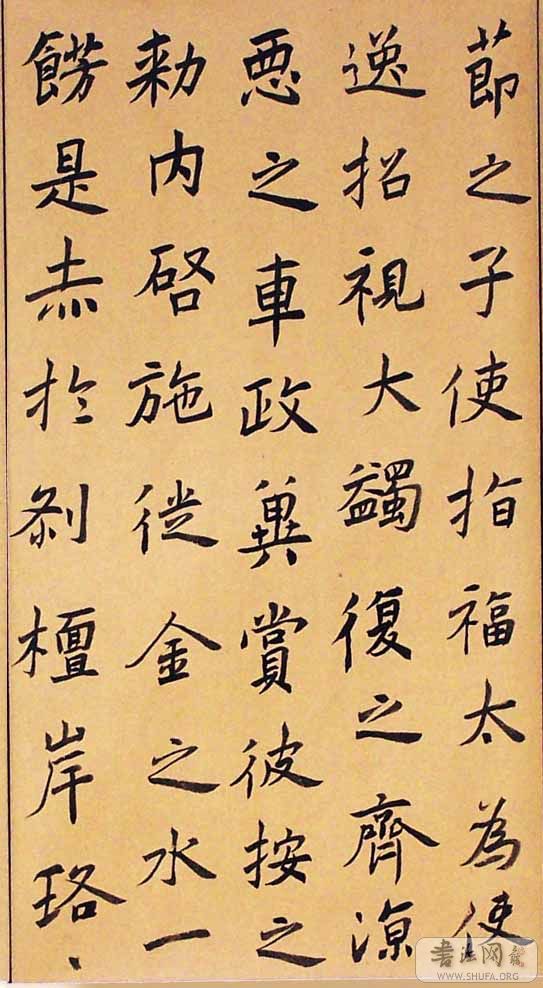 節之子使指福太為使
逸招視大蠲復之齊凉
惡之車政冀賞彼按之
勑内啓施徙金之水一
餝是赤於剎檀岸珞、
書法网
WWW.SHUFA.ORG